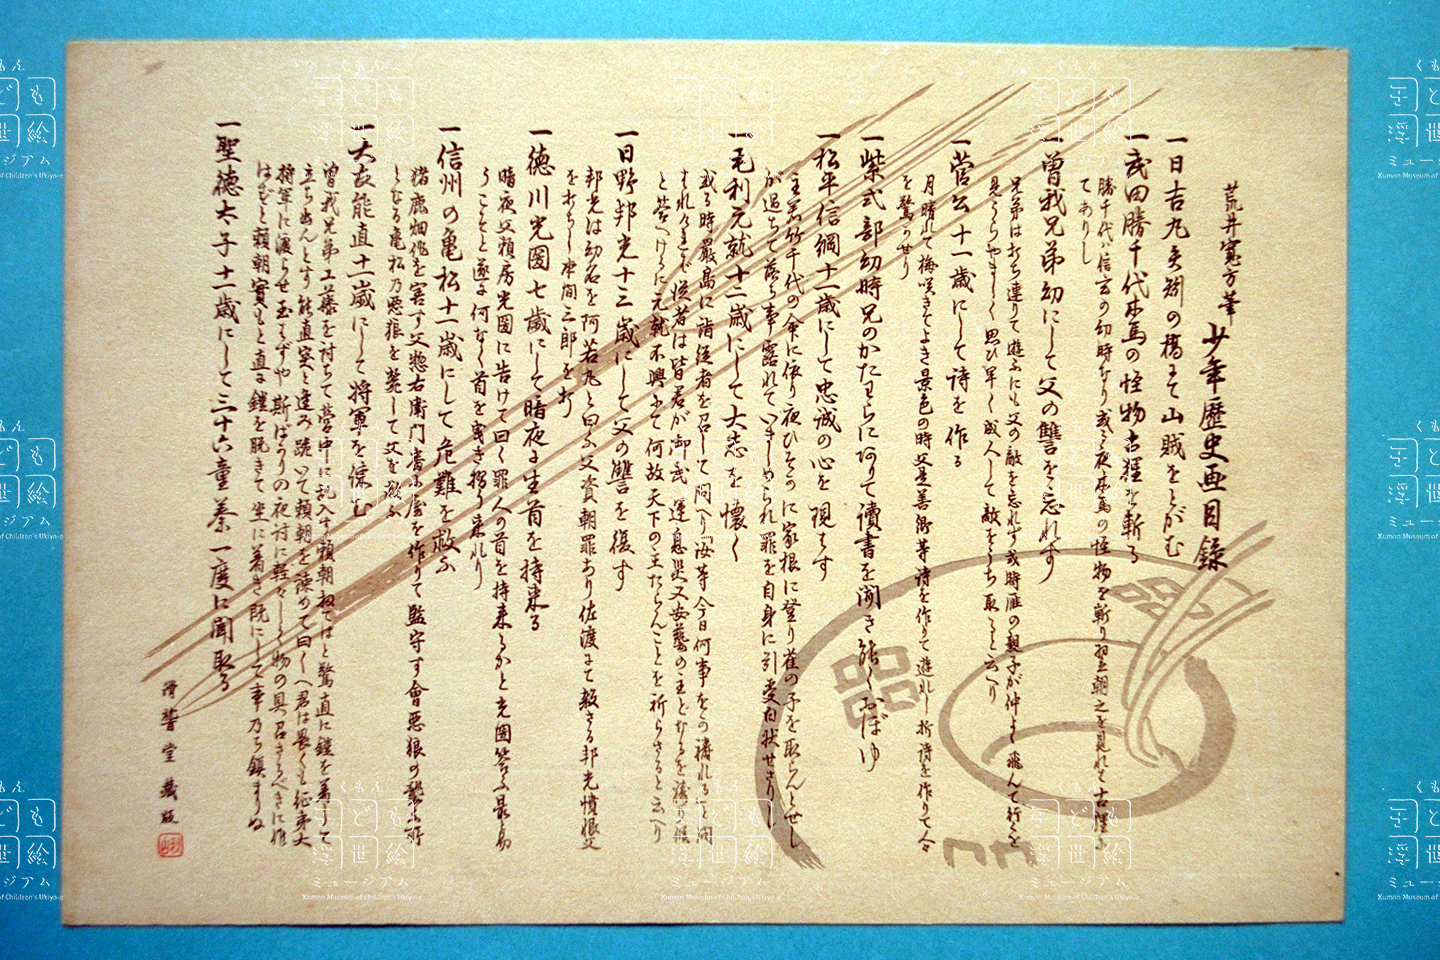 荒井寛方筆
少年歴史画目録
一日吉丸矢矧の橋にて山賊をとがむ
一武田勝千代木馬の怪物古狸を斬る
勝千代ハ信玄の幼時なり或る夜木馬の怪物を斬り翌朝之を見れば古狸に
てありし
一曽我兄弟幼にして父の讐を忘れず
兄弟はおち連りて遊ぶにも父の敵を忘れず或時雁の親子が仲よく飛んで行くを
見てうらやましく思ひ早く成人して敵をうち取らんと云へり
一菅公十一歳にして詩を作る
月晴れて梅咲きてよき景色の時父是善 等詩を作りて遊れし折詩を作りて人々
を驚かせり
一紫式部幼時兄のかたわらに座りて讀書を聞き能くおぼゆ
一松平信綱十一歳にして忠誠の心を現はす
主君竹千代の命に依り夜ひそかに家根に登り雀の子を取らんとせし
が過ちて落ち事露れていましめられ罪を自身に引受白状せざりし
一毛利元就十二歳にして大志を懐く
或る時嚴島に詣従者を召して問へり「汝等今日何事をか祷れる」と問
はれるまで従者は皆君が御武運息災又安藝の主となるを
と答へけるに元就不興にて何故天下の主たらんことを祈らざると云へり
一日野邦光十三歳にして父の讐を復す
邦光は幼名を阿若丸と曰ふ父資朝罪あり佐渡にて殺さる邦光憤恨父
を打ちし本間三郎を打
一徳川光圀七歳にして暗夜に生首を持来る
暗夜父頼房光圀に告けて曰く罪人の首を持来るかと光圀答ふ最易
うことと遂に何なく首を曳き摺り来れり
一信州の亀松十一歳にして危難を救ふ
猪鹿畑作を害す父惣右衛門番小屋を作りて監守す會悪狼の襲ふ所
となる亀松乃悪狼を斃して父を救ふ
一大友能直十一歳にして将軍を諫む
曽我兄弟工藤を討ちて営中に乱入す頼朝如てはと驚直に鎧を着して
立ち出んとす能直突と進み跪いて頼朝を諫めて曰く君は畏くも征夷大
将軍に渡らせ玉はずや斯ばかりの夜討に軽々しく物の具召さるべきに非
はむと頼朝實もと直に鎧を脱ぎて坐に着き既にして事乃ち鎮まりぬ
一聖徳太子十一歳にして三十六童奏一度に聞取る
誓堂蔵版
くもん
子ども
浮世絵
ミュージアム
Kumon Museum of Children's Ukiyo-e